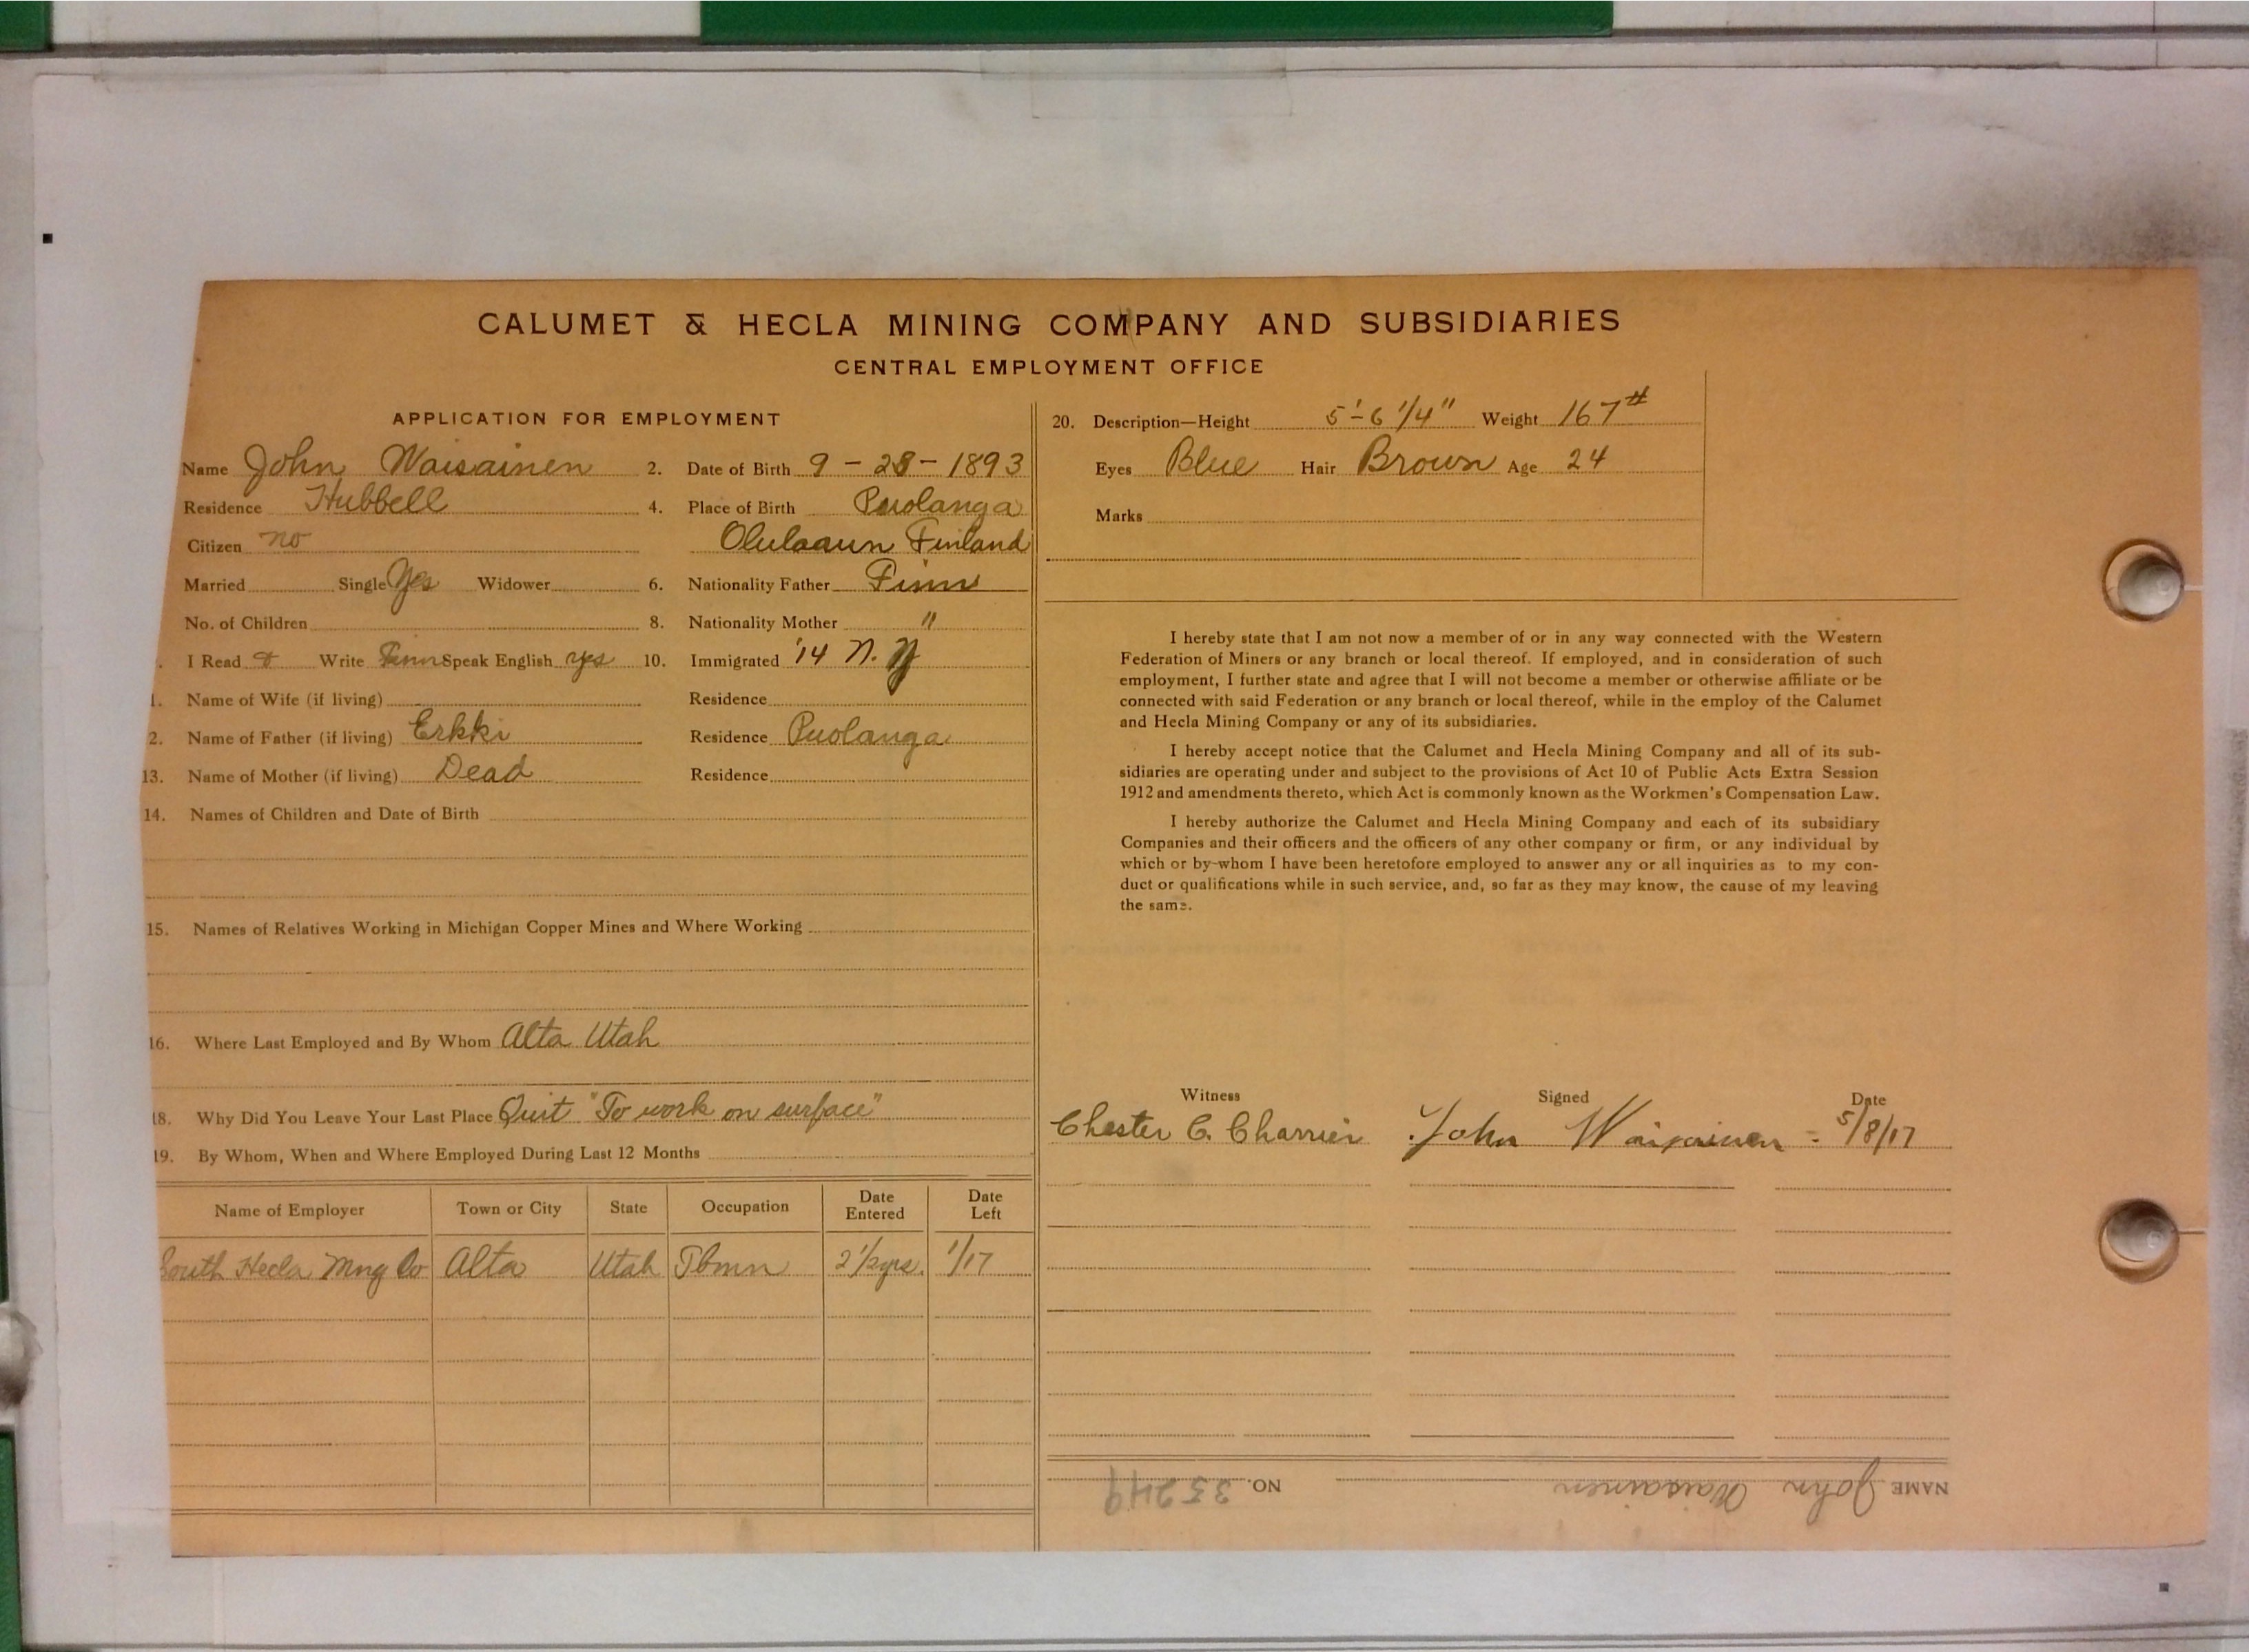 CALUMET & HECLA MINING COMPANY AND SUBSIDIARIES
CENTRAL EMPLOYMENT OFFICE
APPLICATION FOR EMPLOYMENT
Name John Waisainen 2. Date of Birth 9 - 28 - 1893
Residence Hubbell 4. Place of Birth Puolanga
Citizen no Olulaaun Finland
Married Single Yes Widower 6. Nationality Father Finn
No. of Children 8. Nationality Mother "
. I Read & Write Finn Speak English yes 10. Immigrated '14 N. Y
1. Name of Wife (if living) Residence
2. Name of Father (if living) Erkki Residence Puolanga
13. Name of Mother (if living) Dead Residence
14. Names of Children and Date of Birth
15. Names of Relatives Working in Michigan Copper Mines and Where Working
16. Where Last Employed and By Whom Alta Utah
18. Why Did You Leave Your Last Place Quit "To work on surface"
19. By Whom, When and Where Employed During Last 12 Months
Name of Employer Town or City State Occupation Date Entered Date Left
South Hecla Mng Co Alta Utah Tbmn 2 1/2 yrs. 1/17
20. Description—Height 5'-6 1/4" Weight 167#
Eyes Blue Hair Brown Age 24
Marks
I hereby state that I am not now a member of or in any way connected with the Western
Federation of Miners or any branch or local thereof. If employed, and in consideration of such
employment, I further state and agree that I will not become a member or otherwise affiliate or be
connected with said Federation or any branch or local thereof, while in the employ of the Calumet
and Hecla Mining Company or any of its subsidiaries.
I hereby accept notice that the Calumet and Hecla Mining Company and all of its sub-
sidiaries are operating under and subject to the provisions of Act 10 of Public Acts Extra Session
1912 and amendments thereto, which Act is commonly known as the Workmen's Compensation Law.
I hereby authorize the Calumet and Hecla Mining Company and each of its subsidiary
Companies and their officers and the officers of any other company or firm, or any individual by
which or by whom I have been heretofore employed to answer any or all inquiries as to my con-
duct or qualifications while in such service, and, so far as they may know, the cause of my leaving
the same.
Witness Signed Date
Chester C. Charrier John Waisainen 5/8/17
NAME John Waisainen NO. 35249